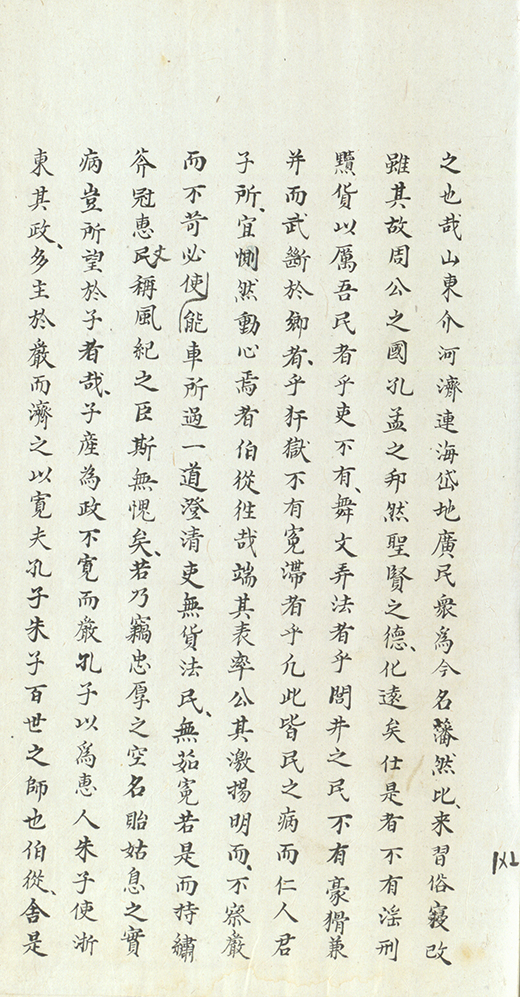 之也哉山東介河濟連海岱地廣民衆為今名藩然比、来習俗寖改
雖其故周公之國孔孟之邦然聖賢之德、化遠矣仕是者不有滛刑
黷貨以厲吾民者乎吏不有、舞文弄法者乎閭井之民不有豪猾兼
并而武斷於鄉者、乎犴獄不有寃滯者乎凡此皆民之病而仁人君
子所、宜惻然動心焉者伯從徃哉端其表率公其激揚明而、不察嚴
而不苛必使能車所過一道澄清吏無貨法民、無茹寃若是而持繡
斧冠惠民文稱風紀之臣斯無愧矣、若乃竊忠厚之空名貽姑息之實
病豈所望於子者哉、子產為政不寛而嚴孔子以為惠人朱子使浙
東其政、多主於嚴而濟之以寛夫孔子朱子百世之師也伯從、舍是